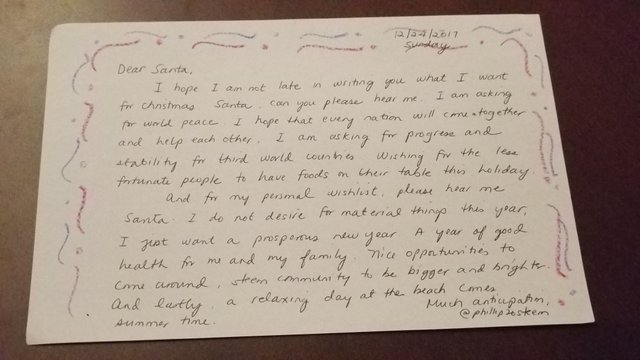 12/24/2017
Sunday
Dear Santa,
I hope I am not late in writing you what I want
for christmas Santa. can you please hear me. I am asking
for world peace. I hope that every nation will come together
and help each other. I am asking for progress and
stability for third world countries. Wishing for the less
fortunate people to have foods on their table this holiday.
And for my personal wishlist, please hear me
Santa. I do not desire for material things this year,
I just want a prosperous new year. A year of good
health for me and my family. Nice opportunities to
come around, steem community to be bigger and brighter.
And lastly, a relaxing day at the beach comes
summer time.
Much anticipation,
@phillip20steem